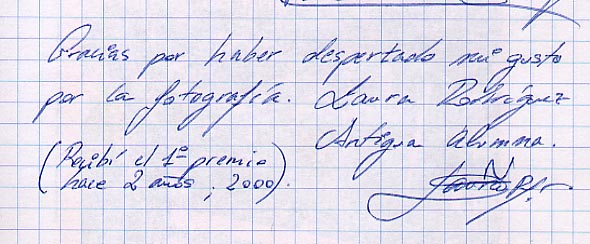 Gracias por haber despertado mi gusto
por la fotografía. Laura Rodríguez
Antigua alumna.
(Recibí el 1º premio
hace 2 años, 2000).